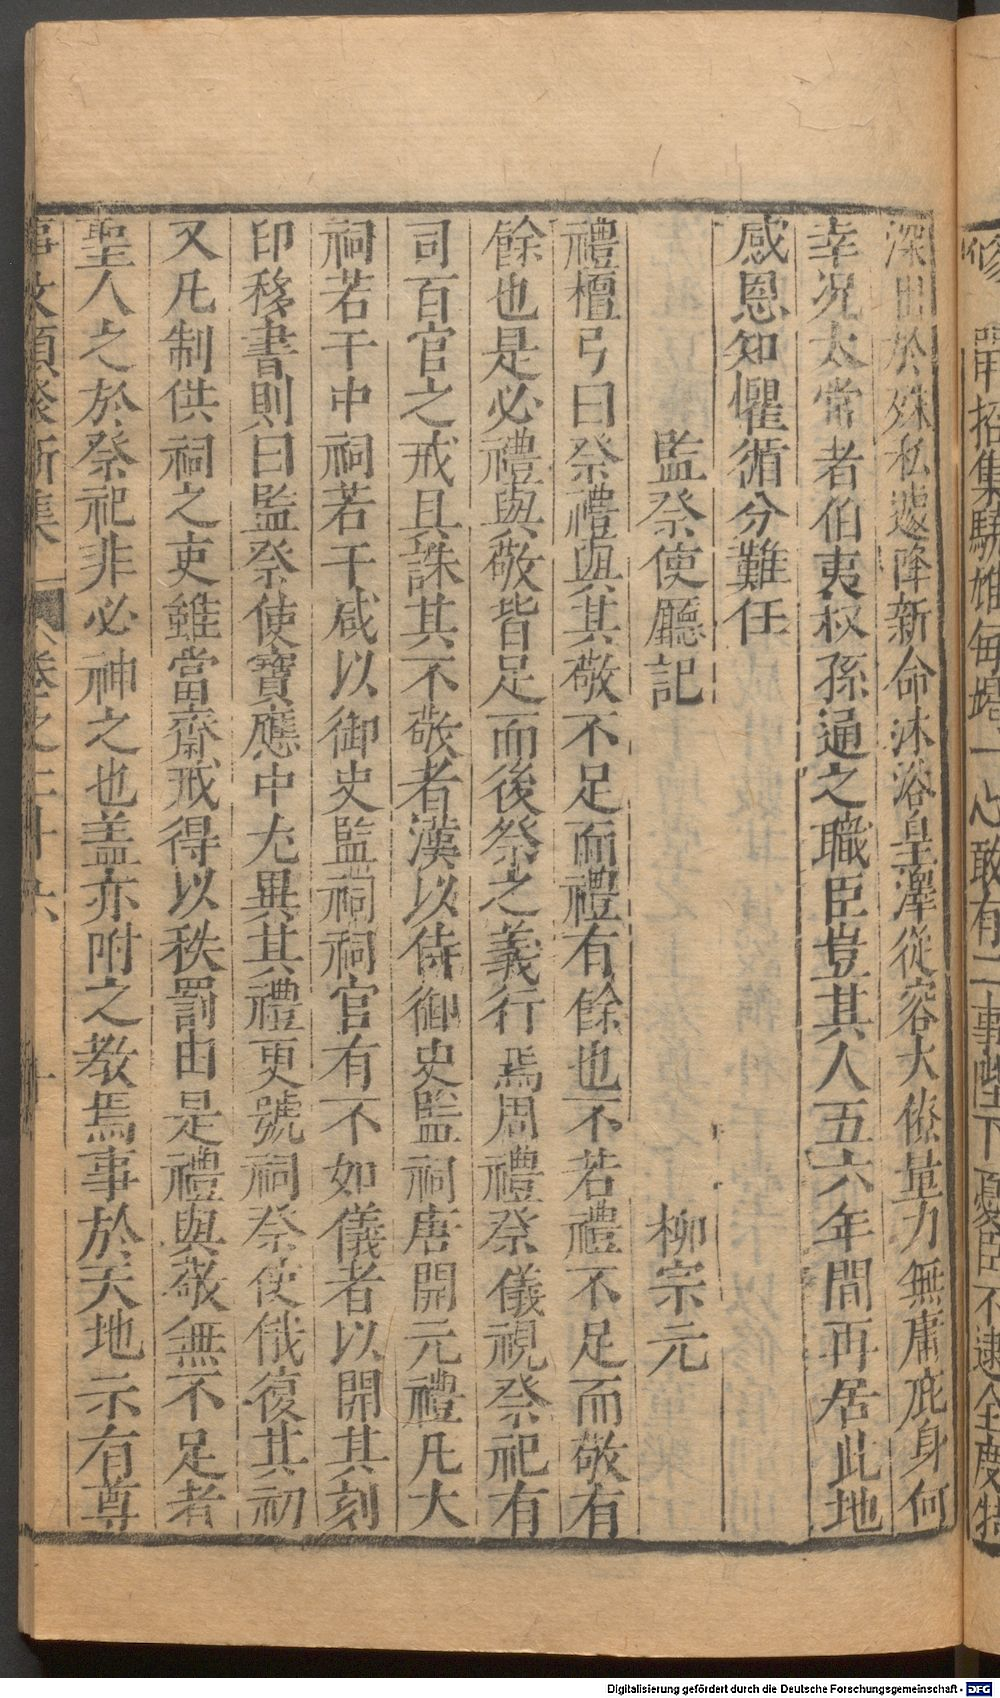 深由於殊私遽降新命沐浴皇澤從容大僚量力無庸庇身何
幸况太常者伯夷叔孫通之職臣豈其人五六年間再居此地
感恩知懼循分難任
監祭使廳記 柳宗元
禮檀弓曰祭禮與其敬不足而禮有餘也不若禮不足而敬有
餘也是必禮與敬皆足而後祭之義行焉周禮祭儀視祭祀有
司百官之戒具誅其不敬者漢以侍御史監祠唐開元禮凡大
祠若干中祠若干咸以御史監祠祠官有不如儀者以開其刻
印移書則曰監祭使寳應中尤異其禮更號祠祭使俄復其初
又凡制供祠之吏雖當齋戒得以秩罰由是禮與敬無不足者
聖人之於祭祀非必神之也盖亦附之教焉事於天地示有尊
事文類聚新集 卷之二十六 十
招集驍雄每蹈一心敢有二事陛下憂臣不逮全度特
Digitalisierung gefördert durch die Deutsche Forschungsgemeinschaft - DFG